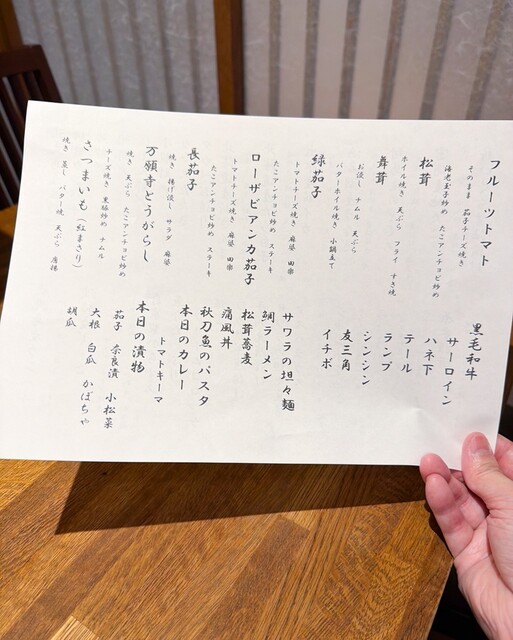 フルーツトマト
そのまま 茄子チーズ焼き
海老玉子炒め たこアンチョビ炒め
松茸
ホイル焼き 天ぷら フライ すき焼
舞茸
お浸し ナムル 天ぷら
バターホイル焼き 小鍋立て
緑茄子
トマトチーズ焼き 麻婆 田楽
たこアンチョビ炒め ステーキ
ローザビアンカ茄子
トマトチーズ焼き 麻婆 田楽
たこアンチョビ炒め ステーキ
長茄子
焼き 揚げ浸し サラダ 麻婆
万願寺とうがらし
焼き 天ぷら たこアンチョビ炒め
チーズ焼き 黒豚炒め ナムル
さつまいも(紅まさり)
焼き 蒸し バター焼 天ぷら 唐揚
黒毛和牛
サーロイン
ハネ下
テール
ランプ
シンシン
友三角
イチボ
サワラの坦々麺
鯛ラーメン
松茸蕎麦
痛風丼
秋刀魚のパスタ
本日のカレー
トマトキーマ
本日の漬物
茄子 奈良漬 小松菜
大根 白瓜 かぼちゃ
胡瓜